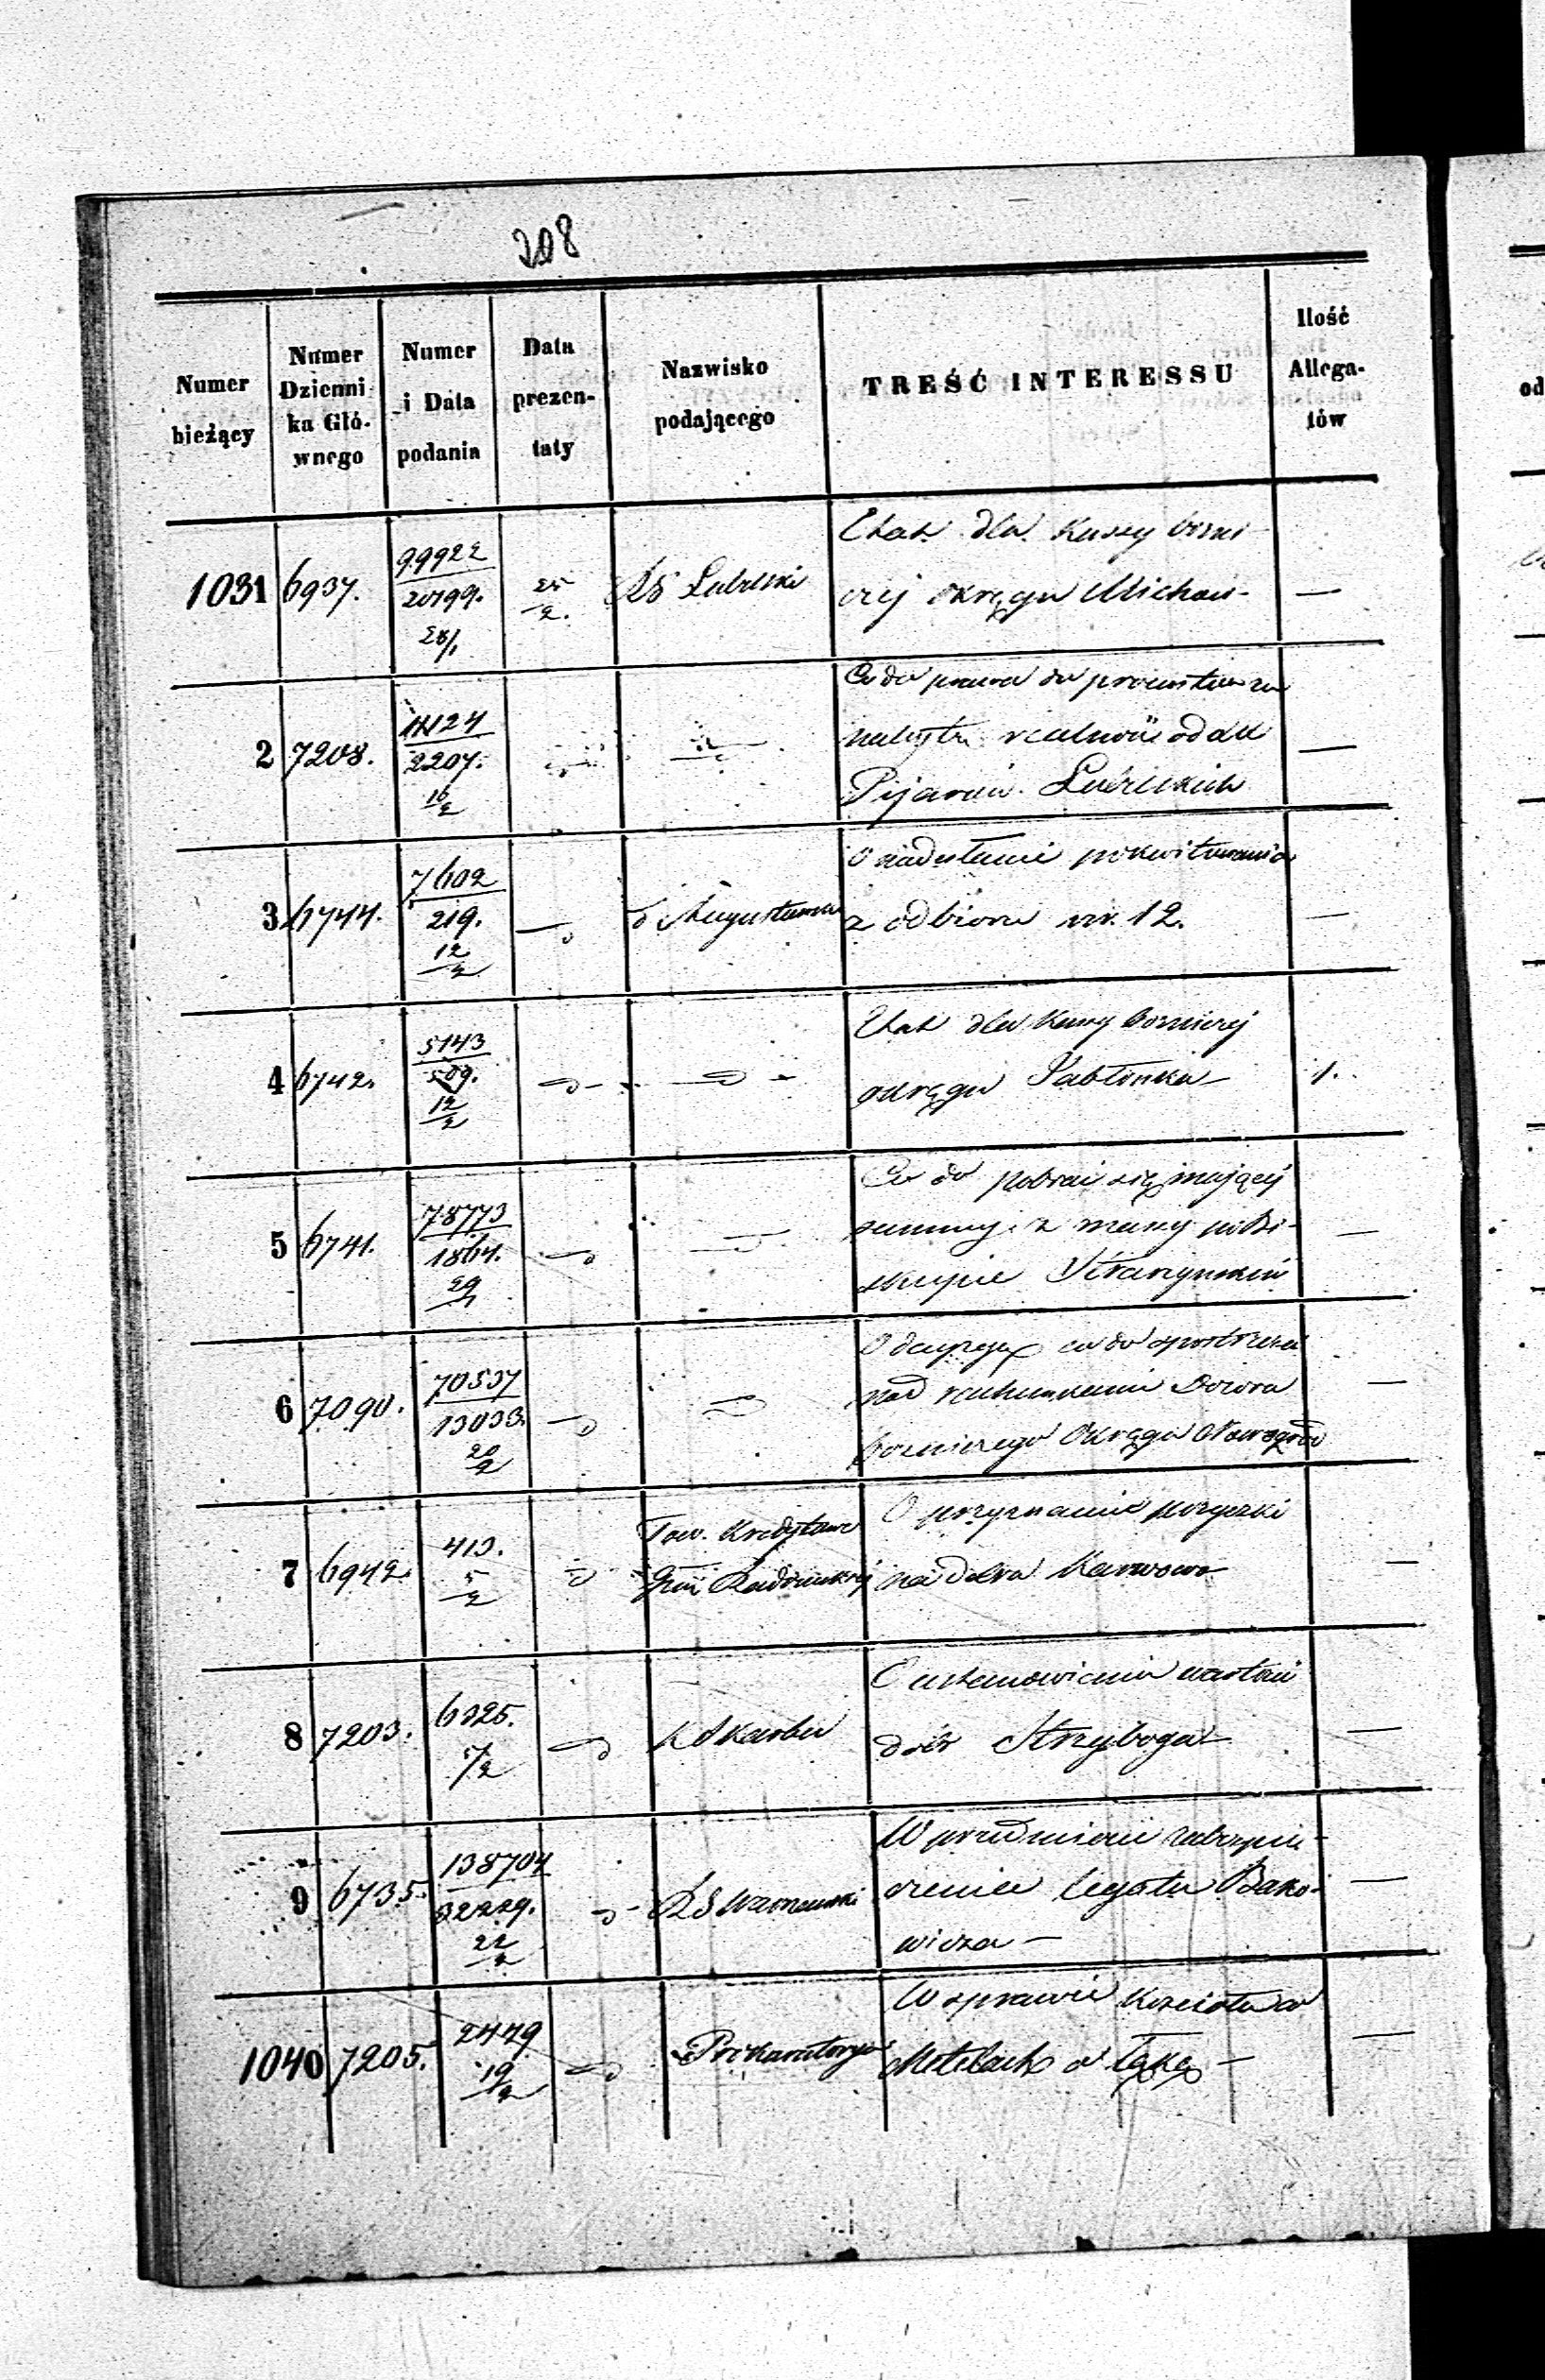 208
Numer bieżący
Numer Dzienni-ka Głó-wnego
Numer i Data podania
Data prezen-taty
Nazwisko podającego
TREŚĆ INTERESSU
Ilość Allega-tów
1031 6937. 99922 20799. 28/1 25/2. RG Lubelski
Etat dla Kassy bożni-
czej okręgu Michow- —
2 7208. 2207. 16/2
Co do prawa do
nabytéj realności od XX
Pijarów Lubelskich —
3 6744. 7602 219. 12/2 Augustowsk
O nadesłanie pokwitowania
z odbioru nr. 12. —
4 6742. 5143 509. 12/2
Etat dla Kassy bożniczej
okręgu Jabłonka 1.
5 6741. 78773 1864. 29/1
Co do pobrać się mającej
summy z massy po Bi-
skupie Straszyńskim —
6 7090. 70537 13033. 20/2
O decyzją co do spostrzeżeń
nad rachunkami Dozoru
bożniczego Okręgu Nowogród —
7 6942. 413. 5/2 Tow. Kredytowe
Gub Radomskiej
O przyznanie pożyczki
na dobra Karwowo —
8 7203. 6325. 7/2 K Skarbu
O ustanowienie wartości
dóbr Strzyboga —
9 6735. 138704 32229. 22/2 RG Warszawski
W przedmiocie zabezpie-
czenia legatu Bako-
wicza — —
1040 7205. 2449 19/2 Prokuratorya
W sprawie Kościoła w
Metelach o łąkę — —